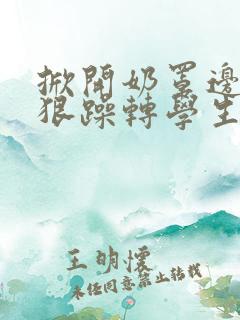 掀開奶罩邊
狠躁轉學生
王明懷
未经同意禁止转载